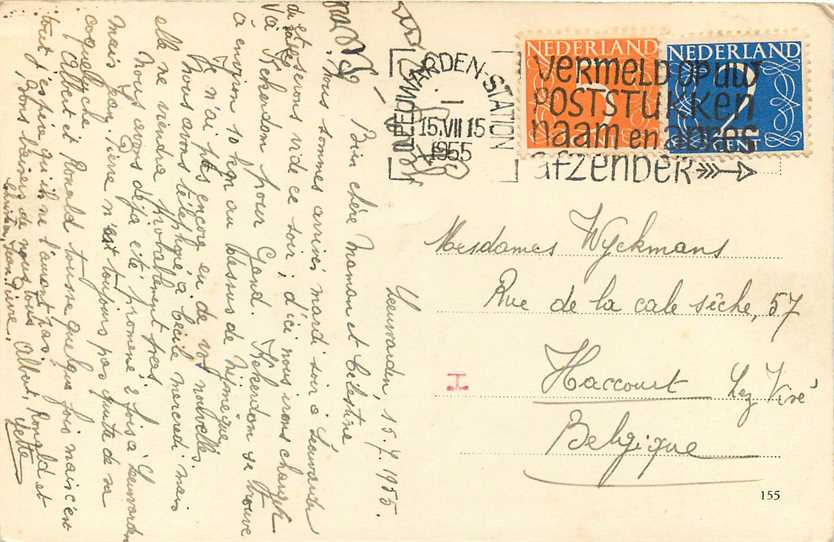 NEDERLAND
NEDERLAND
2 CENT
LEEUWARDEN-STATION
15.VII 15
1955
VERMELD OP UW
POSTSTUKKEN
naam en adres
afzender
Mesdames Wyckmans
Rue de la cale sêche, 57
Haccourt Lez Visé
Belgique
155
Leeuwarden, 15.7.1955.
Bien chère Maman et Célestine
Nous sommes arrivés mardi soir à Leeuwarden
et serons vide ce soir; d'ici nous irons charger
à Kekerdom pour Gand. Kekerdom se trouve
à environ 10 km au dessus de Nijmegen
Je n'ai pas encore eu de vos nouvelles.
Nous avons téléphoné à Cécile mercredi mais
elle ne viendra probablement pas.
Nous avons déjà été promené 2 fois à Leeuwarden
mais Jean-Pierre n'est toujours pas quitte de sa
coqueluche.
Albert et Ronald tousse quelque fois mais c'est
tout j'espère qu'ils ne l'auront pas.
Bons baisers de nous tous Albert, Ronald et
Jean Pierre.
Yette